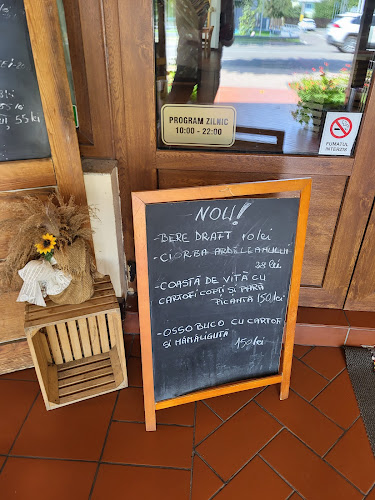 55 lei
PROGRAM ZILNIC
10:00 - 22:00
FUMATUL
INTERZIS
NOU!
-BERE DRAFT 10 lei
-CIORBA ARDELEANULUI
38 lei
-COASTĂ DE VITĂ CU
CARTOFI COPȚI ȘI PARĂ
PICANTĂ 150 lei
-OSSO BUCO CU CARTOFI
ȘI MĂMĂLIGUȚĂ
150 lei